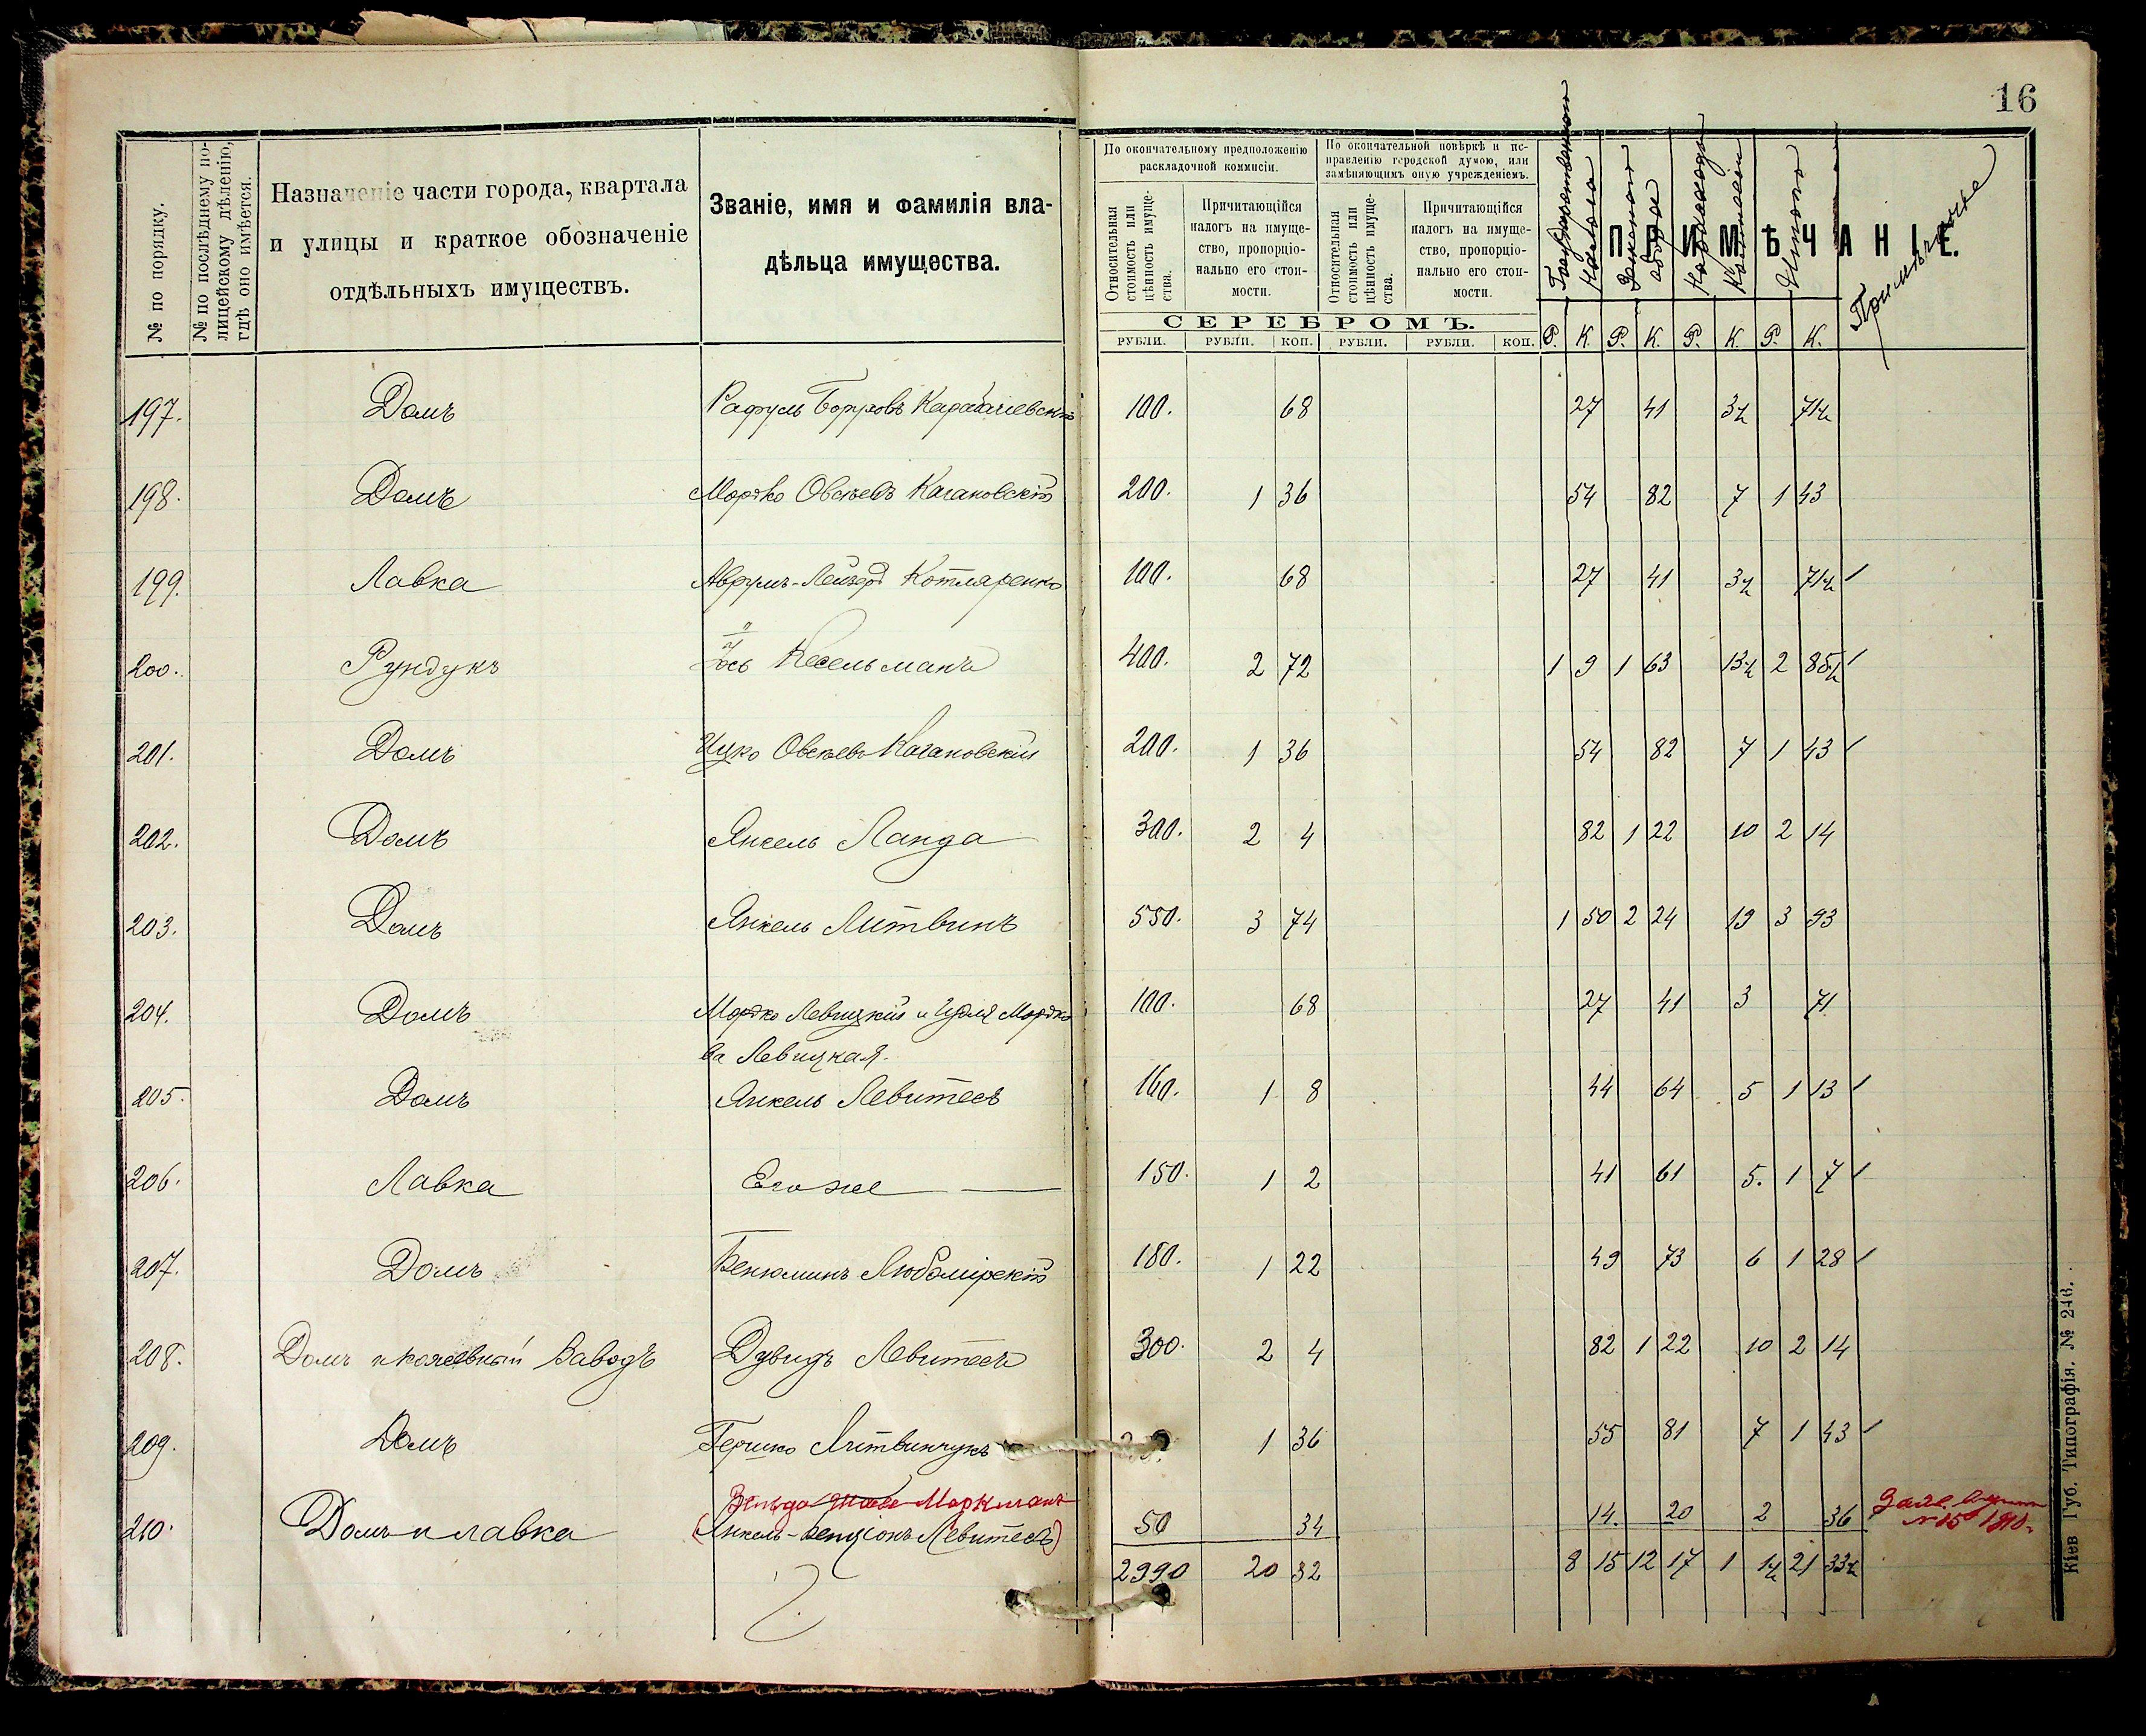 16
№ по порядку.
№ по послѣднему полицейскому дѣленію, гдѣ оно имѣется.
Назначеніе части города, квартала
и улицы и краткое обозначеніе
отдѣльныхъ имуществъ.
Званіе, имя и фамилія вла-
дѣльца имущества.
По окончательному предположенію
раскладочной комисіи.
По окончательной повѣркѣ и ис-
правленію городской думою, или
замѣняющимъ оную учрежденіемъ.
Относительная стоимость или цѣнность имуще-ства.
Причитающійся
налогъ на имуще-
ство, пропорціо-
нально его стои-
мости.
Относительная стоимость или цѣнность имуще-ства.
Причитающійся
налогъ на имуще-
ство, пропорціо-
нально его стои-
мости.
СЕРЕБРОМЪ.
РУБЛИ. РУБЛИ. КОП. РУБЛИ. РУБЛИ. КОП.
ПРИМѢЧАНІЕ.
Налога
Земскаго
сбора
Итого
Примѣчаніе
Р. К. Р. К. Р. К. Р. К.
197. Домъ 100. 68 27 41 3½ 71½
198. Домъ Мордко Овсѣевъ Кагановскій 200. 1 36 54 82 7 1 43
199. Лавка Аврумъ-Лейзеръ Котляренко 100. 68 27 41 3½ 71½
200. Рундукъ Іось Кесельманъ 400. 2 72 1 9 1 63 13½ 2 85½
201. Домъ Ицко Овсѣевъ Кагановскій 200. 1 36 54 82 7 1 43
202. Домъ Янкель Ланда 300. 2 4 82 1 22 10 2 14
203. Домъ Янкель Литвинъ 550. 3 74 1 50 2 24 19 3 93
204. Домъ Мордко Левицкій и Мордко 100. 68 27 41 3 71
ва Левицкая.
205. Домъ Янкель Левитесъ 160. 1 8 44 64 5 1 13
206. Лавка Его же 150. 1 2 41 61 5. 1 7
207. Домъ Бенюминъ Любомірскій 180. 1 22 49 73 6 1 28
208. Домъ и кожевный Заводъ Дувидъ Левитесъ 300. 2 4 82 1 22 10 2 14
209. Домъ Гершко Литвинчукъ 1 36 55 81 7 1 43
Маркманъ
210. Домъ и лавка (Янкель-Бенціонъ Левитесъ) 50 34 14. 20 2 36
№ 15 1910.
2990 20 32 8 15 12 17 1 1½ 21 33½
Кіев Губ. Типографія. № 246.